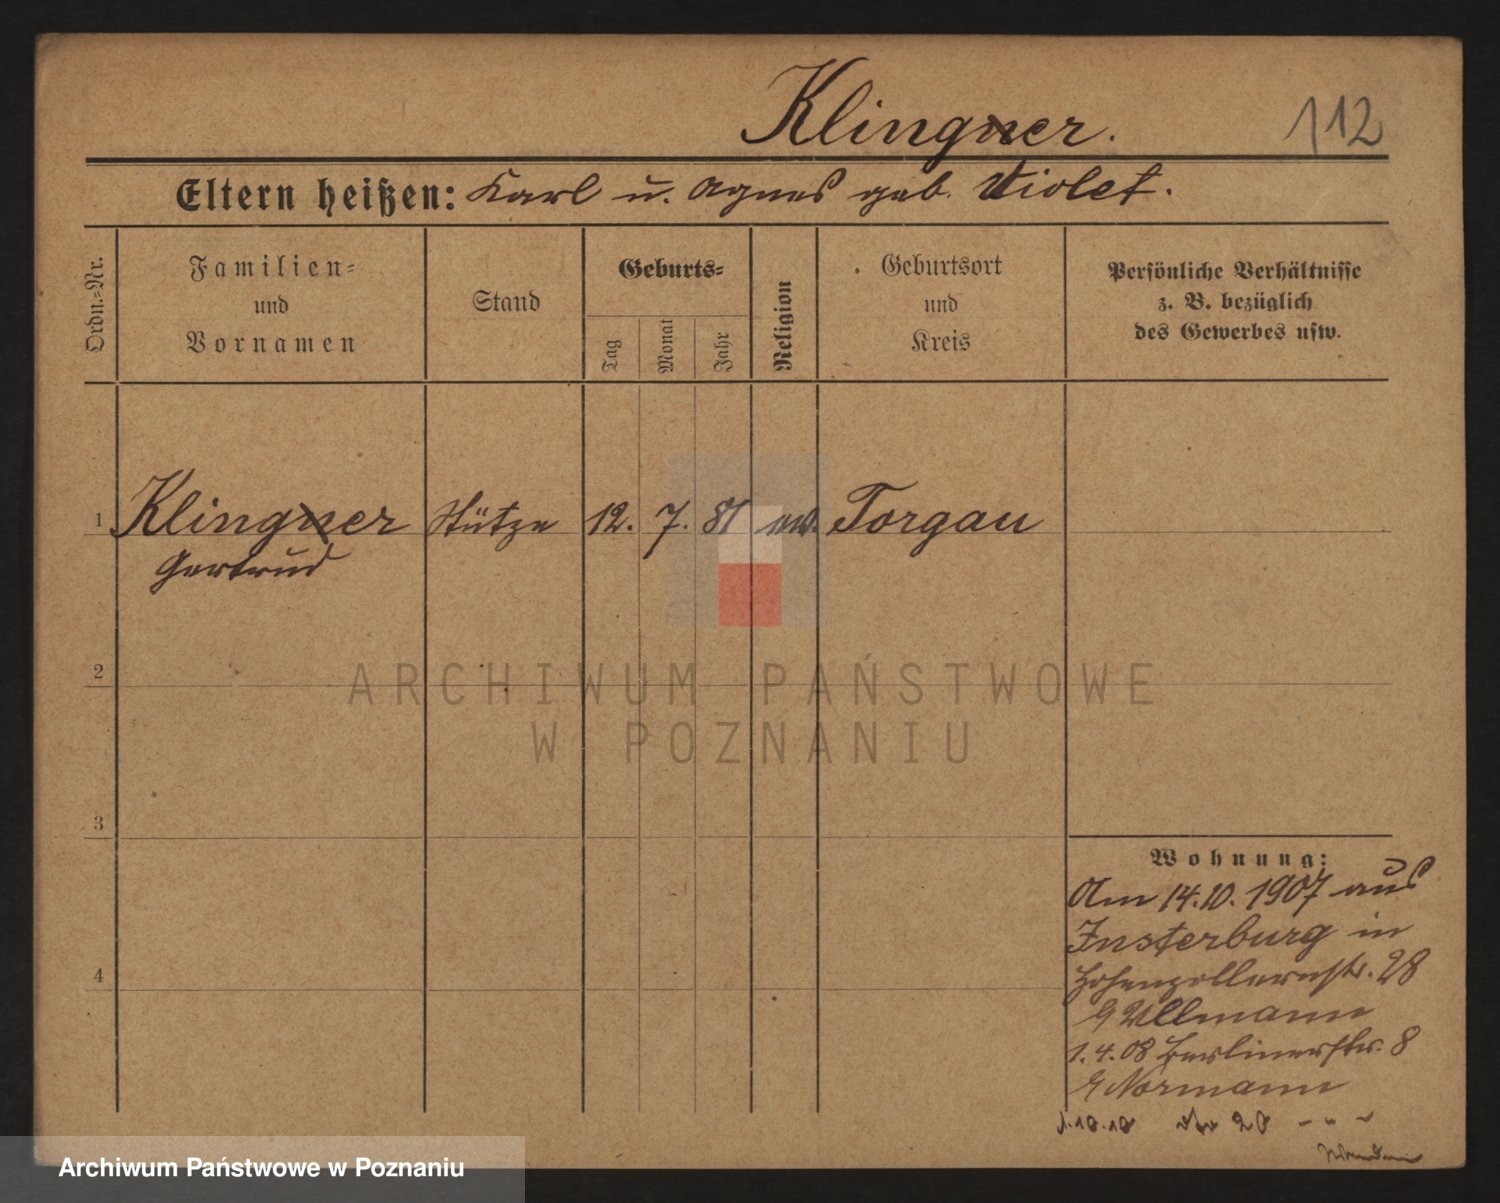 Klingner.
112
Eltern heißen: Karl u. Agnes geb. Violet.
Ordn.-Nr.
Familien-
und
Vornamen
Stand
Geburts-
Tag
Monat
Jahr
Religion
Geburtsort
und
Kreis
Persönliche Verhältnisse
z. B. bezüglich
des Gewerbes usw.
1 Klingner Stütze 12. 7. 81 ev. Torgau
Gertrud
2
3
4
Wohnung:
Am 14.10.1907 aus
Insterburg in
Hohenzollernstr. 28
Ullmann
1.4.08 Berlinerstr. 8
Normann
1.10.10 20 - " -
ARCHIWUM PAŃSTWOWE
W POZNANIU
Archiwum Państwowe w Poznaniu